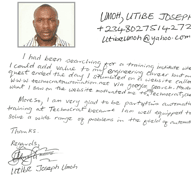 UMOH, UTIBE JOSEPH
+2348027514272
utibeumoh@yahoo.com
I had been searching for a training institute wh
I could add value to my engineering career until
the day I stumbled on a website
www. .com via google search.
what I saw on the website motivated me to
More so, I am very glad to be part of in automation
training at because I am well equipped to
solve a wide range of problems in the field of automat
Thanks.
Regards,
UTIBE JOSEPH UMOH